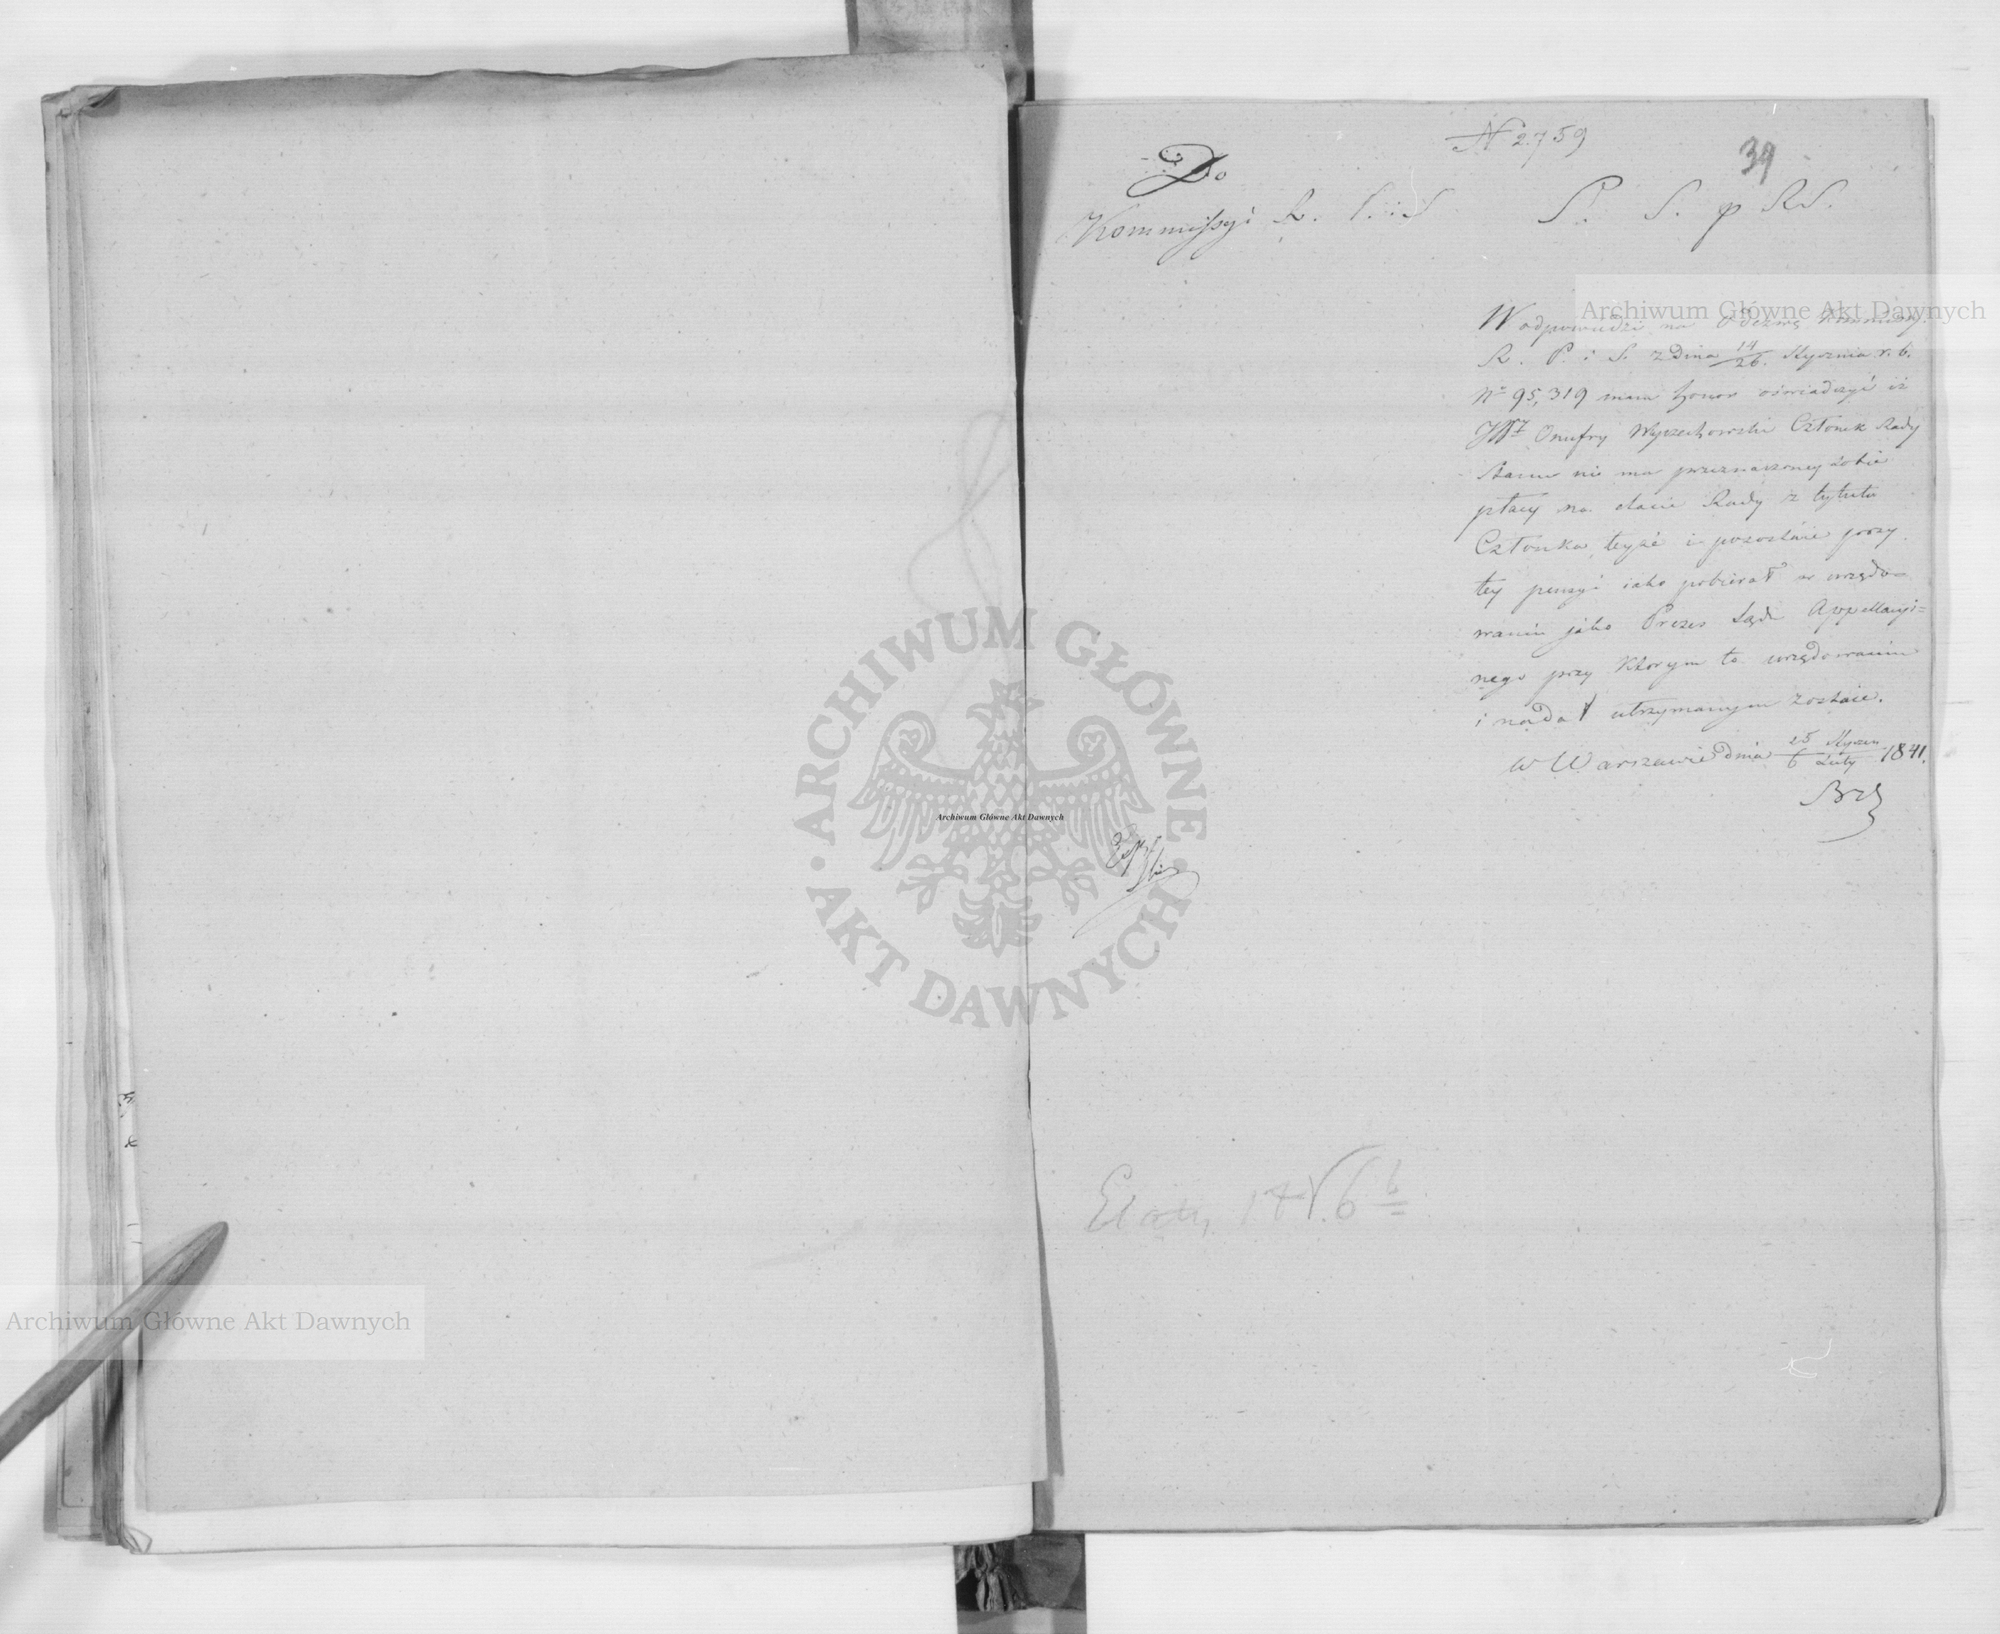 N 2759
39
Do
Kommissyi R. P. i S
P. S. p RS.
W odpowiedzi na Odezwę Kommissyi
R. P. i S. z dnia 14/26. Stycznia r. b.
Nº 95,319 mam honor oświadczyć iż
JWº Onufry Wyczechowski Członek Rady
Stanu nie ma przeznaczoney sobie
płacy na etacie Rady z tytułu
Członka teyże i pozostaie przy
tey pensyi iaką pobierał w urzędo=
waniu jako Prezes Sądu Appellacyi=
nego przy którym to urzędowaniu
i nadal utrzymanym zostaie.
w Warszawie dnia 25 Stycz./6 Luty 1841.
Archiwum Główne Akt Dawnych
ARCHIWUM GŁÓWNE
· AKT DAWNYCH ·
Archiwum Główne Akt Dawnych
Archiwum Główne Akt Dawnych